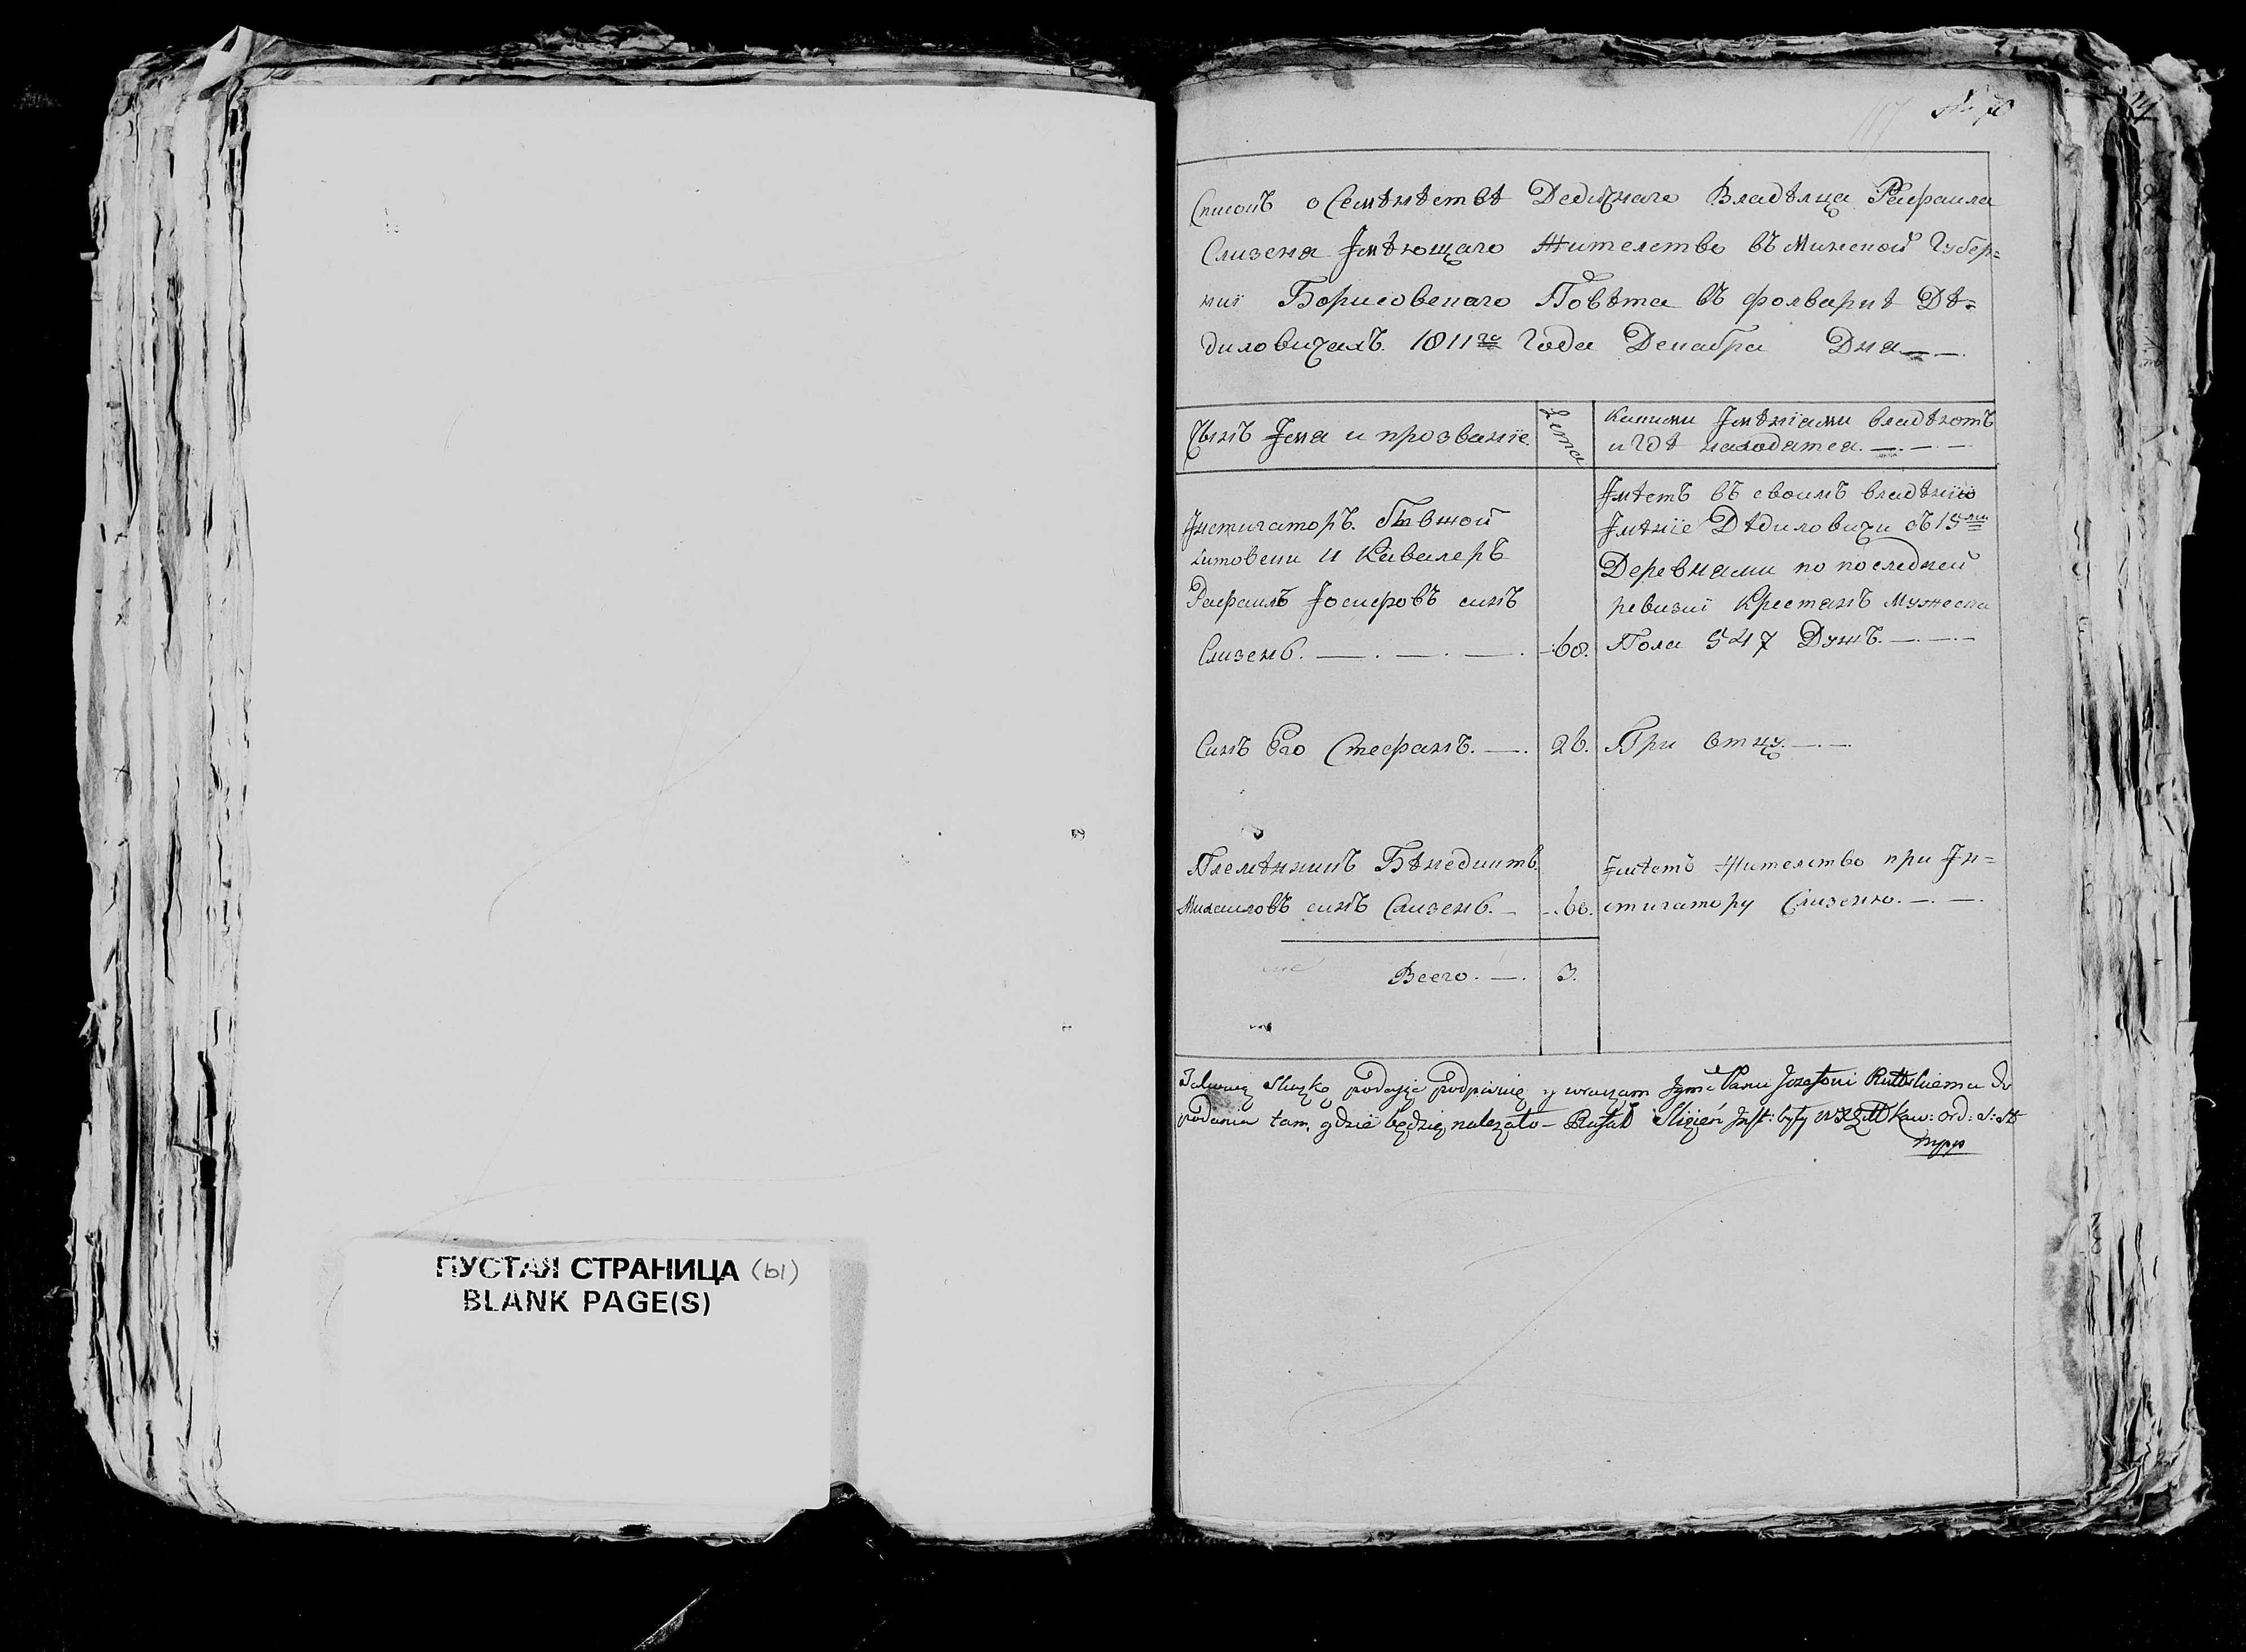 ПУСТАЯ СТРАНИЦА (ы)
BLANK PAGE(S)
117 № 70
Списокъ о Семѣйствѣ Дедичнаго Владѣлца Рафаила
Слизеня Імѣющаго Жителство въ Минской Губер=
нiи Борисовскаго Повѣта въ фолваркѣ Дѣ=
диловичахъ. 1811го Года Декабра Дна
Чинъ Імя и прозванїе
Лета
Какими Імѣнїами владѣютъ
и Гдѣ находатся.
Інстигаторъ. бывшой
Литовски и Кавалеръ
Рафаилъ Іосифовъ синъ
Слизень. 60.
Імѣетъ въ своимъ владѣнїю
Імѣнїе Дѣдиловичи съ 15ми
Деревнями по последней
ревизїи Крестянъ мужеска
Пола 547 Душъ.
Синъ Его Стефанъ. 26. При Отцу.
Племѣнникъ Бѣнедиктъ
Михаиловъ синъ Слизень. 60.
Імѣетъ Жителство при Ін=
стигатору Слизеню.
Всего. 3.
podając podpisuię y Jozefowi do
podania tam, gdzie będzie należało – Rafał Slizień Inst: były Kaw: Ord: S: St
mpp